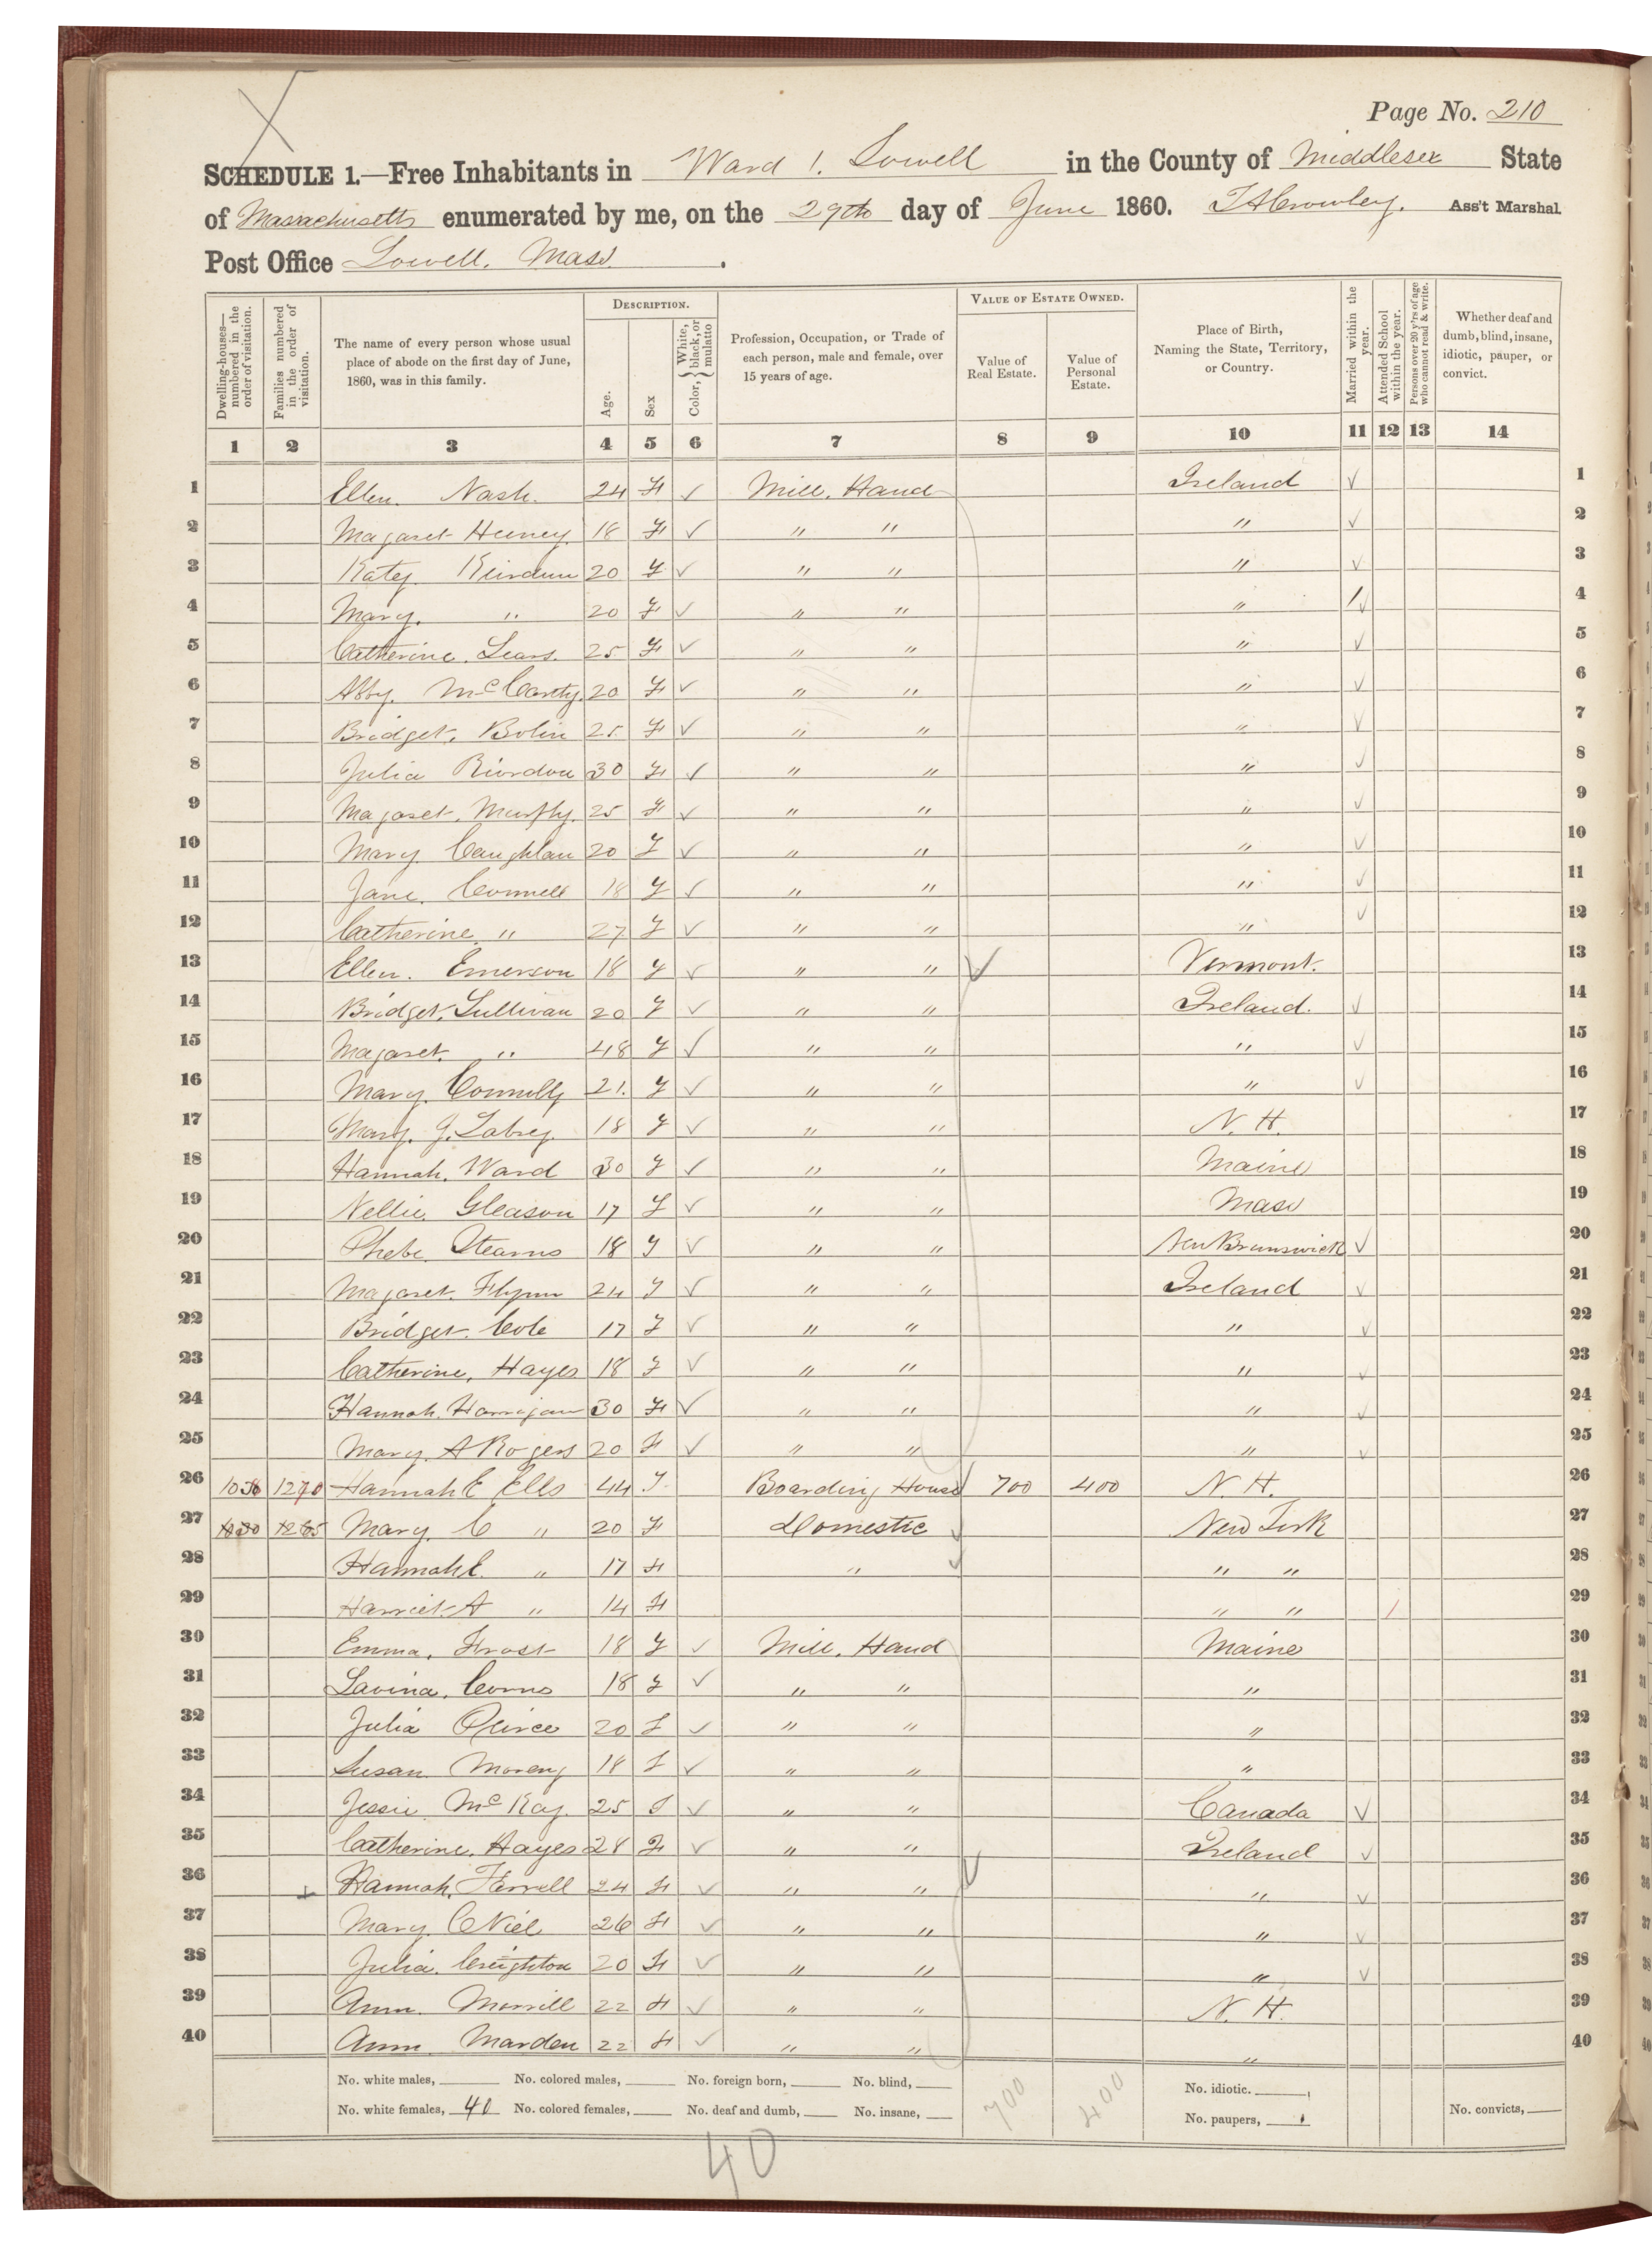 Page No. 210
SCHEDULE 1.—Free Inhabitants in Ward 1. Lowell in the County of Middlesex State
of Massachusetts enumerated by me, on the 29th day of June 1860. Ass't Marshal
Post Office Lowell. Mass.
Dwelling-houses—numbered in the order of visitation.
Families numbered in the order of visitation.
The name of every person whose usual place of abode on the first day of June, 1860, was in this family.
DESCRIPTION.
Age.
Sex
Color, { White, black, or mulatto
Profession, Occupation, or Trade of each person, male and female, over 15 years of age.
VALUE OF ESTATE OWNED.
Value of Real Estate.
Value of Personal Estate.
Place of Birth, Naming the State, Territory, or Country.
Married within the year.
Attended School within the year.
Persons over 20 y'rs of age who cannot read & write.
Whether deaf and dumb, blind, insane, idiotic, pauper, or convict.
1 2 3 4 5 6 7 8 9 10 11 12 13 14
1 Ellen. Nash. 24 F ✓ Mill. Hand Ireland ✓ 1
2 Magaret Heeney. 18 F ✓ " " " ✓ 2
3 Katey. 20 F ✓ " " " ✓ 3
4 Mary. " 20 F ✓ " " " ✓ 4
5 Catherine. Sears. 25 F ✓ " " " ✓ 5
6 Abby. McCarty. 20 F ✓ " " " ✓ 6
7 Bridget. Bolin 25 F ✓ " " " ✓ 7
8 Julia Riordon 30 F ✓ " " " ✓ 8
9 Magaret. Murphy. 25 F ✓ " " " ✓ 9
10 Mary Caughlan 20 F ✓ " " " ✓ 10
11 Jane. Connell 18 F ✓ " " " ✓ 11
12 Catherine. " 27 F ✓ " " " ✓ 12
13 Ellen. Emerson 18 F ✓ " " ✓ Vermont. 13
14 Bridget. Sullivan 20 F ✓ " " Ireland. ✓ 14
15 Magaret. " 48 F ✓ " " " ✓ 15
16 Mary. Connelly 21. F ✓ " " " ✓ 16
17 Mary. J. Labey. 18 F ✓ " " N. H. 17
18 Hannah. Ward 30 F ✓ " " Maine 18
19 Nellie. Gleason 17 F ✓ " " Mass 19
20 Phebe Stearns 18 F ✓ " " New Brunswick ✓ 20
21 Magaret. Flynn 24 F ✓ " " Ireland ✓ 21
22 Bridget. Cole 17 F ✓ " " " ✓ 22
23 Catherine, Hayes 18 F ✓ " " " ✓ 23
24 Hannah. Harrigan 30 F ✓ " " " ✓ 24
25 Mary. A Rogers 20 F ✓ " " " ✓ 25
26 1270 Hannah E Ells 44 F Boarding House 700 400 N. H. 26
27 1265 Mary. C " 20 F Domestic ✓ New York 27
28 Hannah E. " 17 F " ✓ " " 28
29 Harriet. A " 14 F " " / 29
30 Emma. Frost 18 F ✓ Mill. Hand Maine 30
31 Lavina. Corns 18 F ✓ " " " 31
32 Julia Peirce 20 F ✓ " " " 32
33 Susan Moreny 18 F ✓ " " " 33
34 Jessie. McKay. 25 F ✓ " " Canada ✓ 34
35 Catherine. Hayes 28 F ✓ " " Ireland ✓ 35
36 Hannah. Farrell 24 F ✓ " " ✓ " ✓ 36
37 Mary. ONiel 26 F ✓ " " " ✓ 37
38 Julia. Creighton 20 F ✓ " " " ✓ 38
39 Ann. Morrill 22 F ✓ " " N. H. 39
40 Ann. Marden 22 F ✓ " " " 40
No. white males, No. colored males, No. foreign born, No. blind, 700 400 No. idiotic.
No. white females, 40 No. colored females, No. deaf and dumb, No. insane, No. paupers, No. convicts,
40